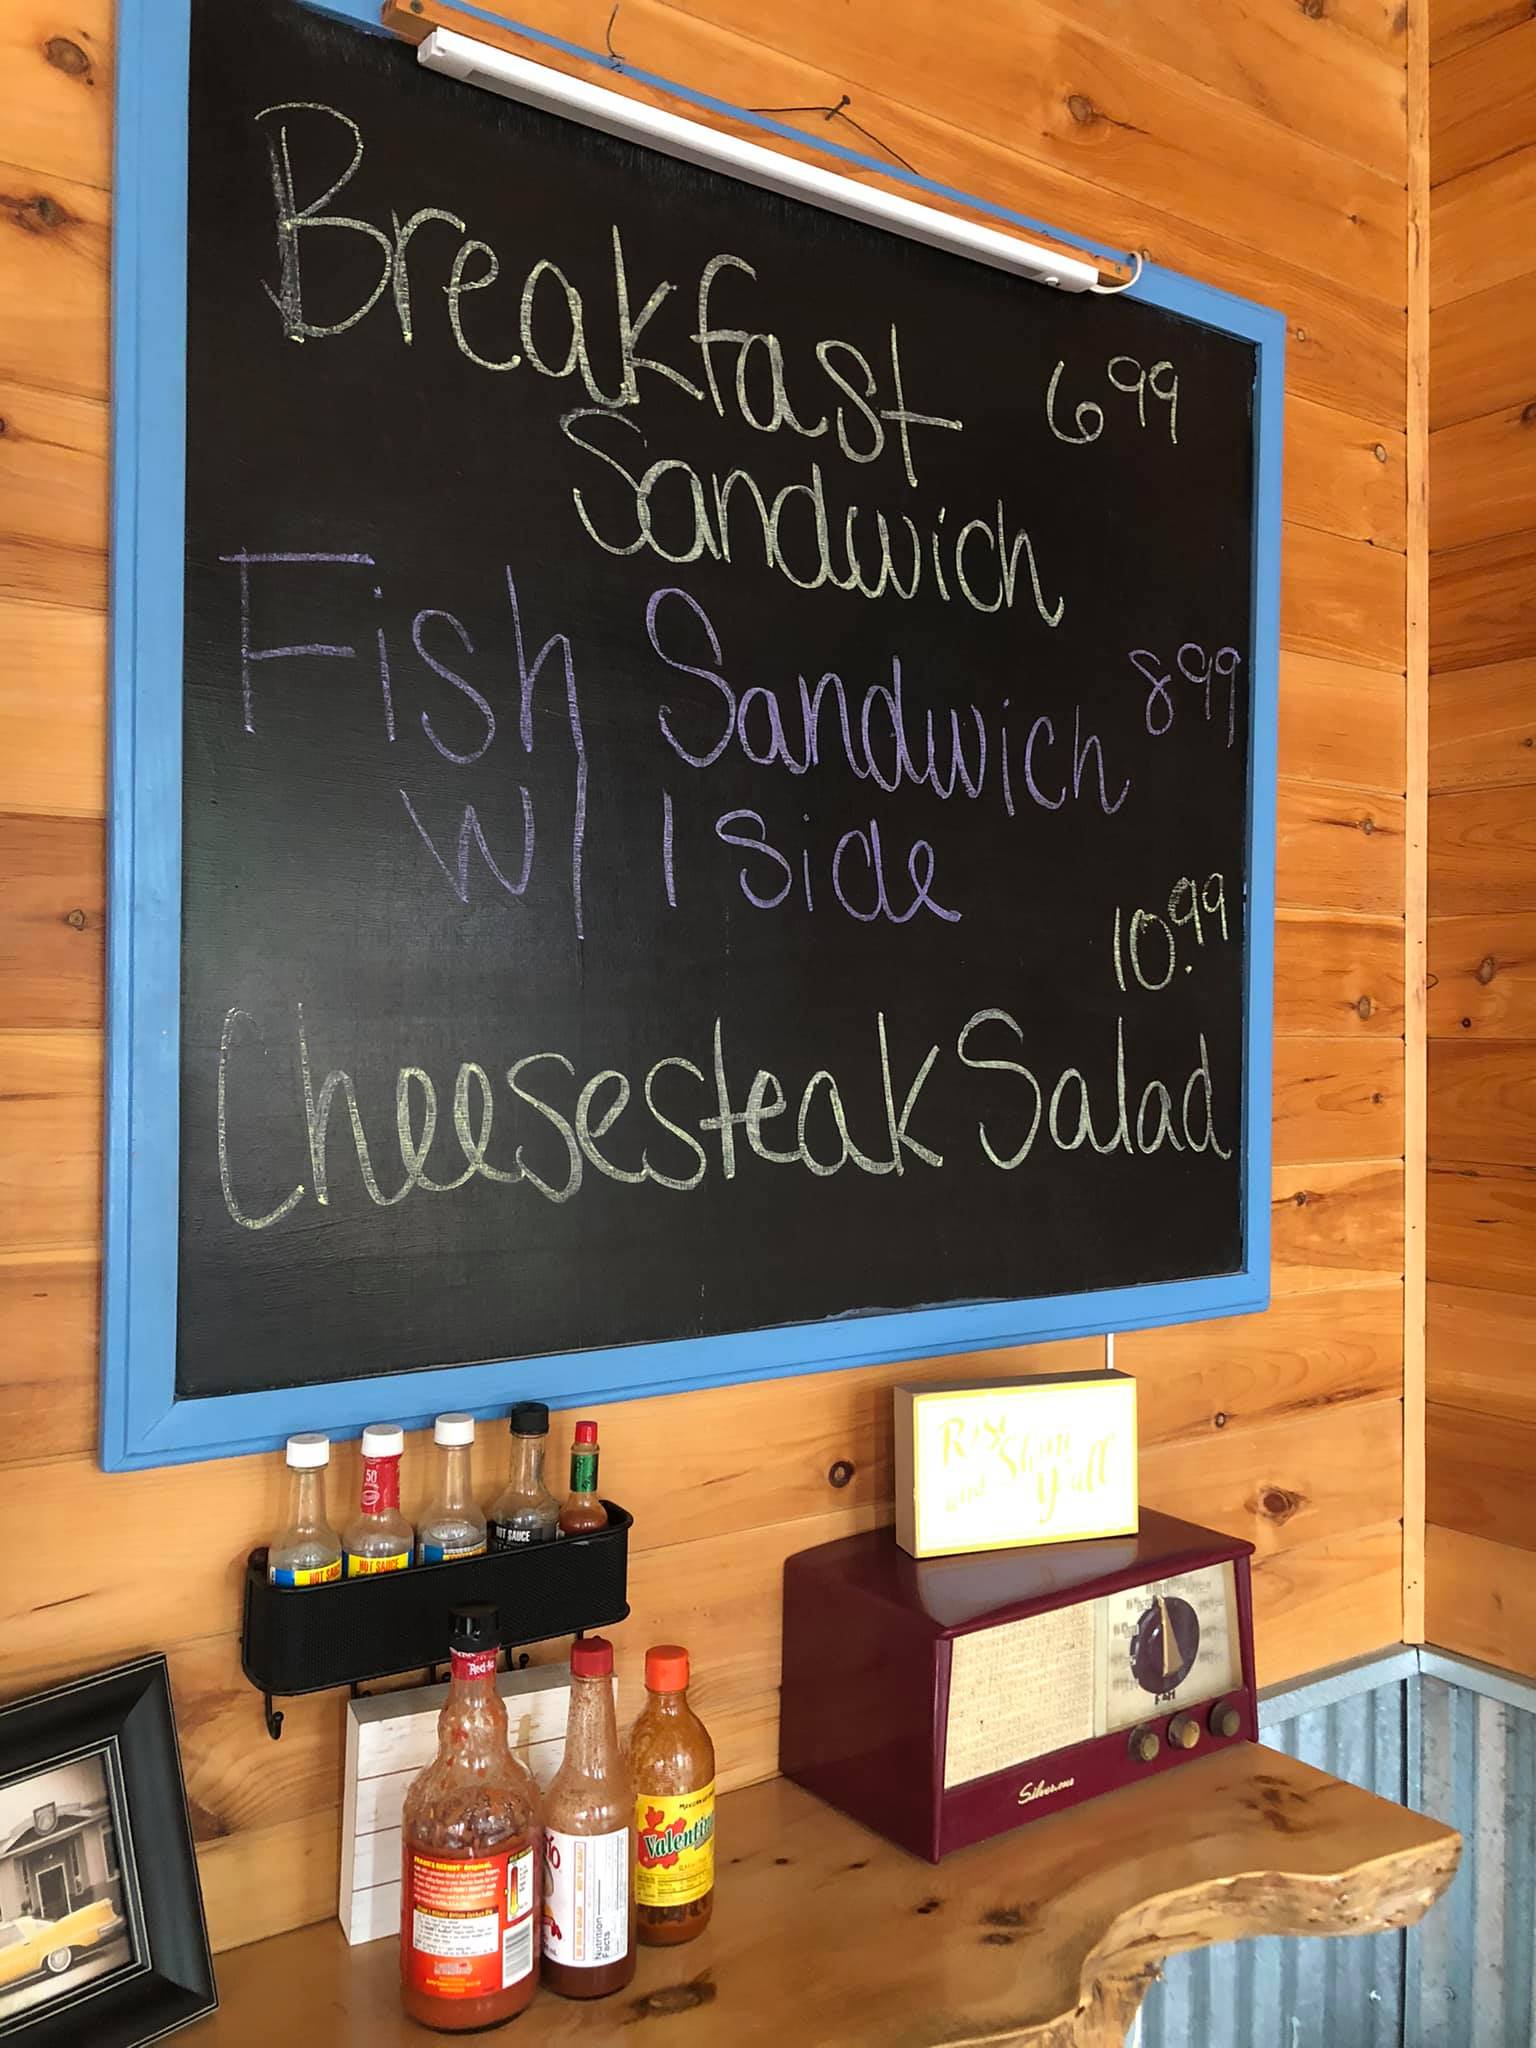 Breakfast 6 99
Sandwich
Fish Sandwich 8 99
w/ 1 side
10.99
Cheesesteak Salad
Rise
and Shine
Y'all
50
HOT SAUCE
HOT SAUCE
HOT SAUCE
FRANK'S REDHOT Original
Nutrition
Facts
Valentina
Silvertone